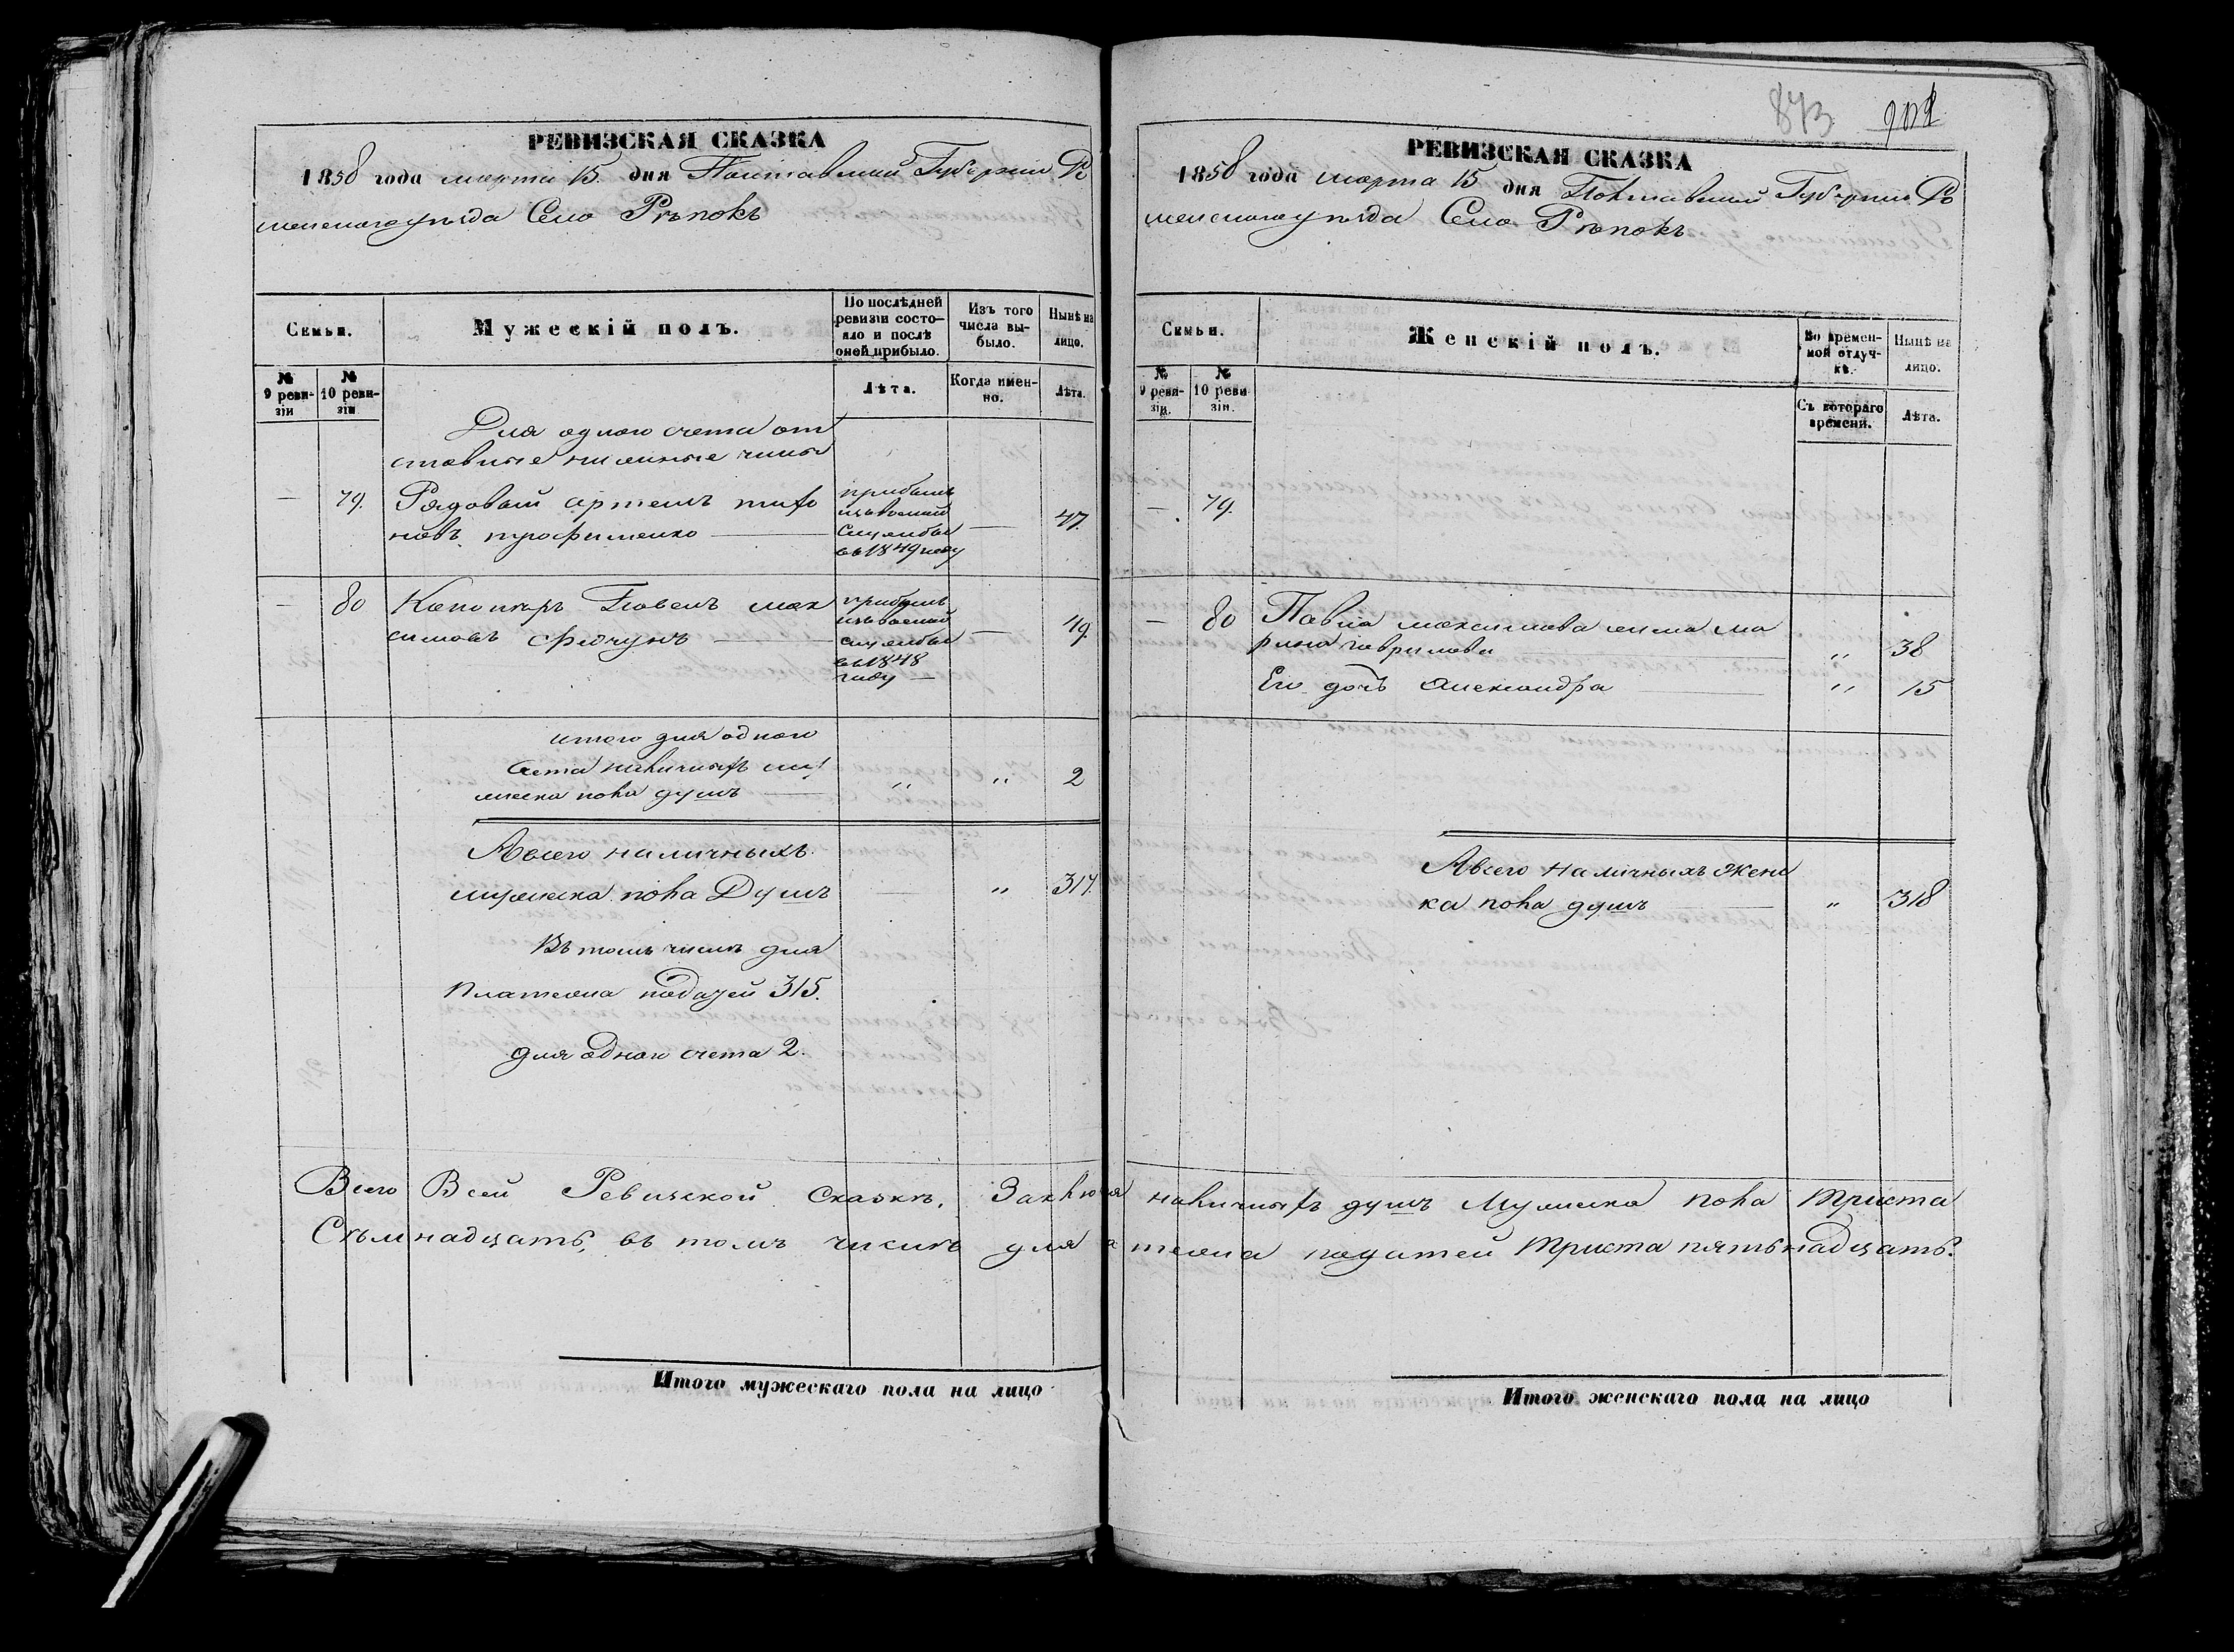 РЕВИЗСКАЯ СКАЗКА
1858 года марта 15. дня Полтавской Губерніи Ро
менского уѣзда Село Рѣпокъ
Семьи.
Мужескій полъ.
По послѣдней ревизіи состо-яло и послѣ оней прибыло.
Изъ того числа вы-было.
Нынѣ на лицо.
№ 9 реви-зіи
№ 10 реви-зіи
Лѣта.
Когда имен-но.
Лѣта.
Для одного счета от
ставные нижние чины
— 79. Рядовый артемъ тихо
новъ трофименко
прибылъ
изъ военной
Службы
въ 1849 году
— 47.
— 80 Павелъ мак
симовъ
прибылъ
изъ военной
службы
въ 1848
году
— 49.
итого для одного
счета наличныхъ му
жеска пола душъ „ „ 2
А всего наличныхъ
мужеска пола Душъ — „ 317.
Въ томъ числѣ для
платежа податей 315.
для одного счета 2.
Всего Всей Ревизской Сказкѣ, Заклю
Съмнадцать, въ томъ числѣ для
Итого мужескаго пола на лицо
873
РЕВИЗСКАЯ СКАЗКА
1858 года марта 15 дня Полтавской Губерніи Ро
менского уѣзда Село Рѣпокъ
Семьи.
Женскій полъ.
Во времен-ной отлуч-кѣ.
Нынѣ на лицо.
№ 9 реви-зіи.
№ 10 реви-зіи.
Съ котораго времени.
Лѣта.
— 79.
— 80 Павла максимова жена ма
рина гаврилова „ 38
Его дочь Александра „ 15
А всего наличныхъ Женс
ка пола душъ „ 318
наличныхъ душъ Мужеска пола триста
тежа податей триста пятьнадцать.
Итого женскаго пола на лицо